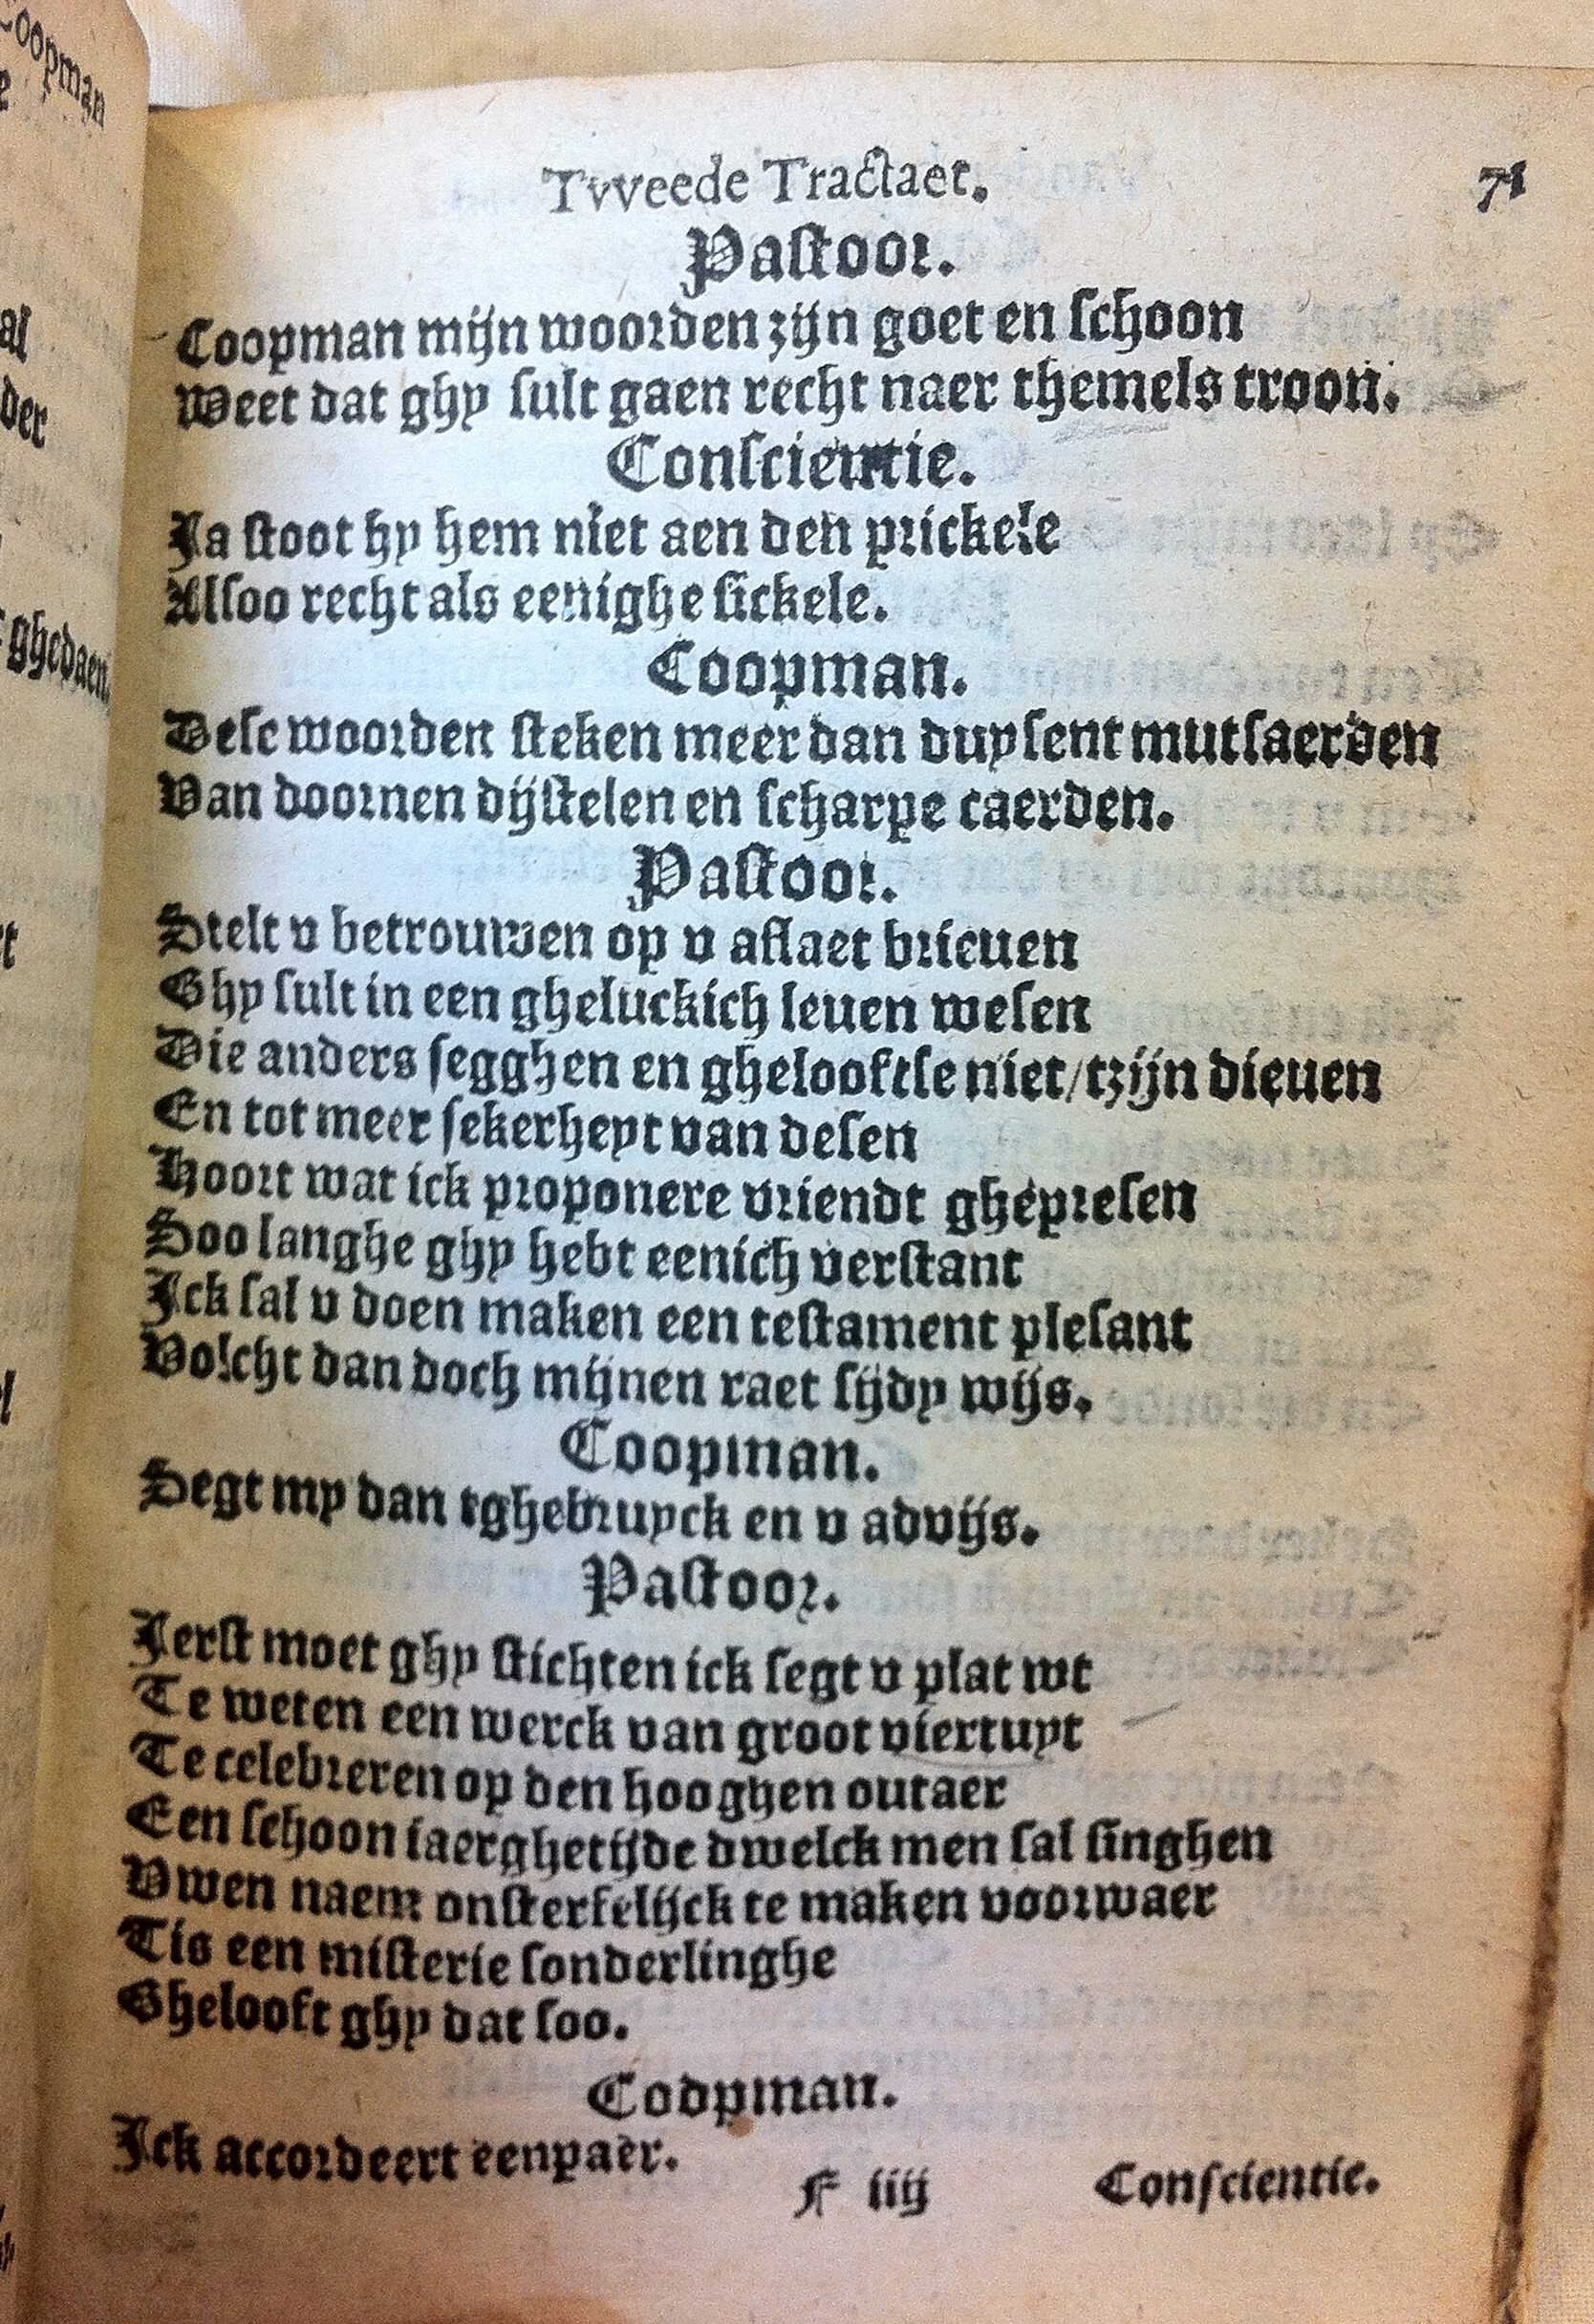 Tvveede Tractaet. 71
Pastoor.
Coopman mijn woorden zijn goet en schoon
Weet dat ghy sult gaen recht naer themels troon.
Conscientie.
Ja stoot hy hem niet aen den prickele
Alsoo recht als eenighe sickele.
Coopman.
Dese woorden steken meer dan duysent mutsaerden
Van doornen dijstelen en scharpe caerden.
Pastoor.
Stelt v betrouwen op v aflaet brieuen
Ghy sult in een gheluckich leuen wesen
Die anders segghen en ghelooftse niet/tzijn dieuen
En tot meer sekerheyt van desen
Hoort wat ick proponere vriendt ghepresen
Soo langhe ghy hebt eenich verstant
Ick sal v doen maken een testament plesant
Volcht dan doch mijnen raet sijdy wijs.
Coopman.
Segt my dan tghebruyck en v advijs.
Pastoor.
Ierst moet ghy stichten ick segt v plat wt
Te weten een werck van groot viertuyt
Te celebreren op den hooghen outaer
Een schoon iaerghetijde dwelck men sal singhen
Vwen naem onsterfelijck te maken voorwaer
Tis een misterie sonderlinghe
Ghelooft ghy dat soo.
Coopman.
Ick accordeert eenpaer.
F iiij Conscientie.
Coopman
al
der
ghedaen.